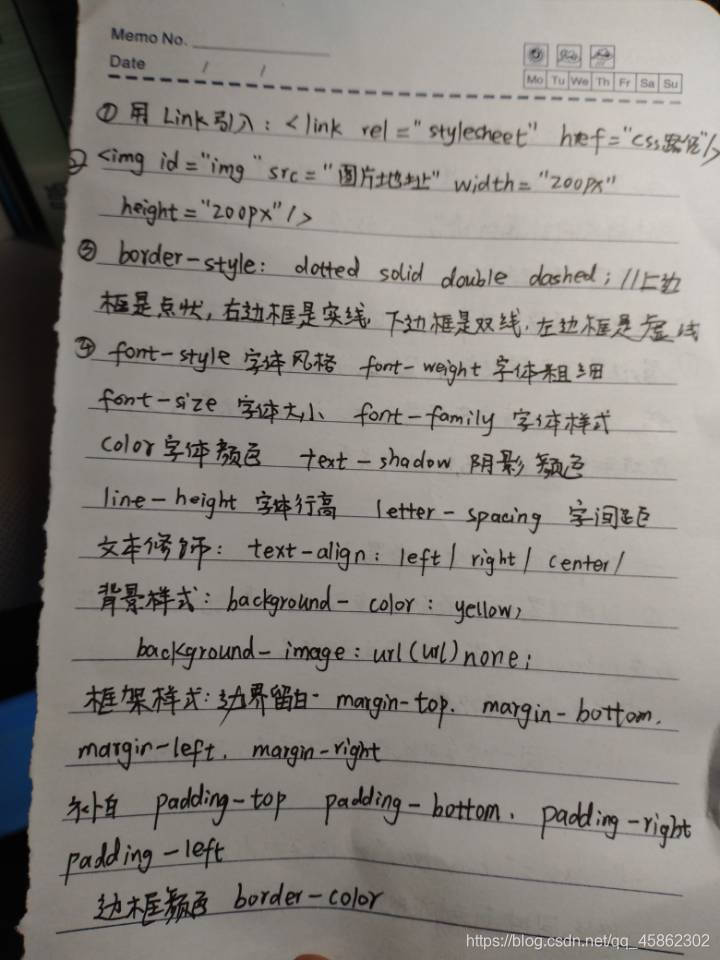 Memo No.
Date / /
Mo Tu We Th Fr Sa Su
① 用 Link引入: <link rel="stylecheet" href="css路径"/>
② <img id="img" src="图片地址" width="200px"
height="200px"/>
③ border-style: dotted solid double dashed; //上边
框是点状, 右边框是实线, 下边框是双线, 左边框是虚线
④ font-style 字体风格 font-weight 字体粗细
font-size 字体大小 font-family 字体样式
color字体颜色 text-shadow 阴影颜色
line-height 字体行高 letter-spacing 字间距
文本修饰: text-align: left/ right/ center/
背景样式: background-color: yellow;
background-image: url(url)none;
框架样式: 边界留白. margin-top. margin-bottom.
margin-left. margin-right
补白 padding-top padding-bottom. padding-right
padding-left
边框颜色 border-color
https://blog.csdn.net/qq_45862302